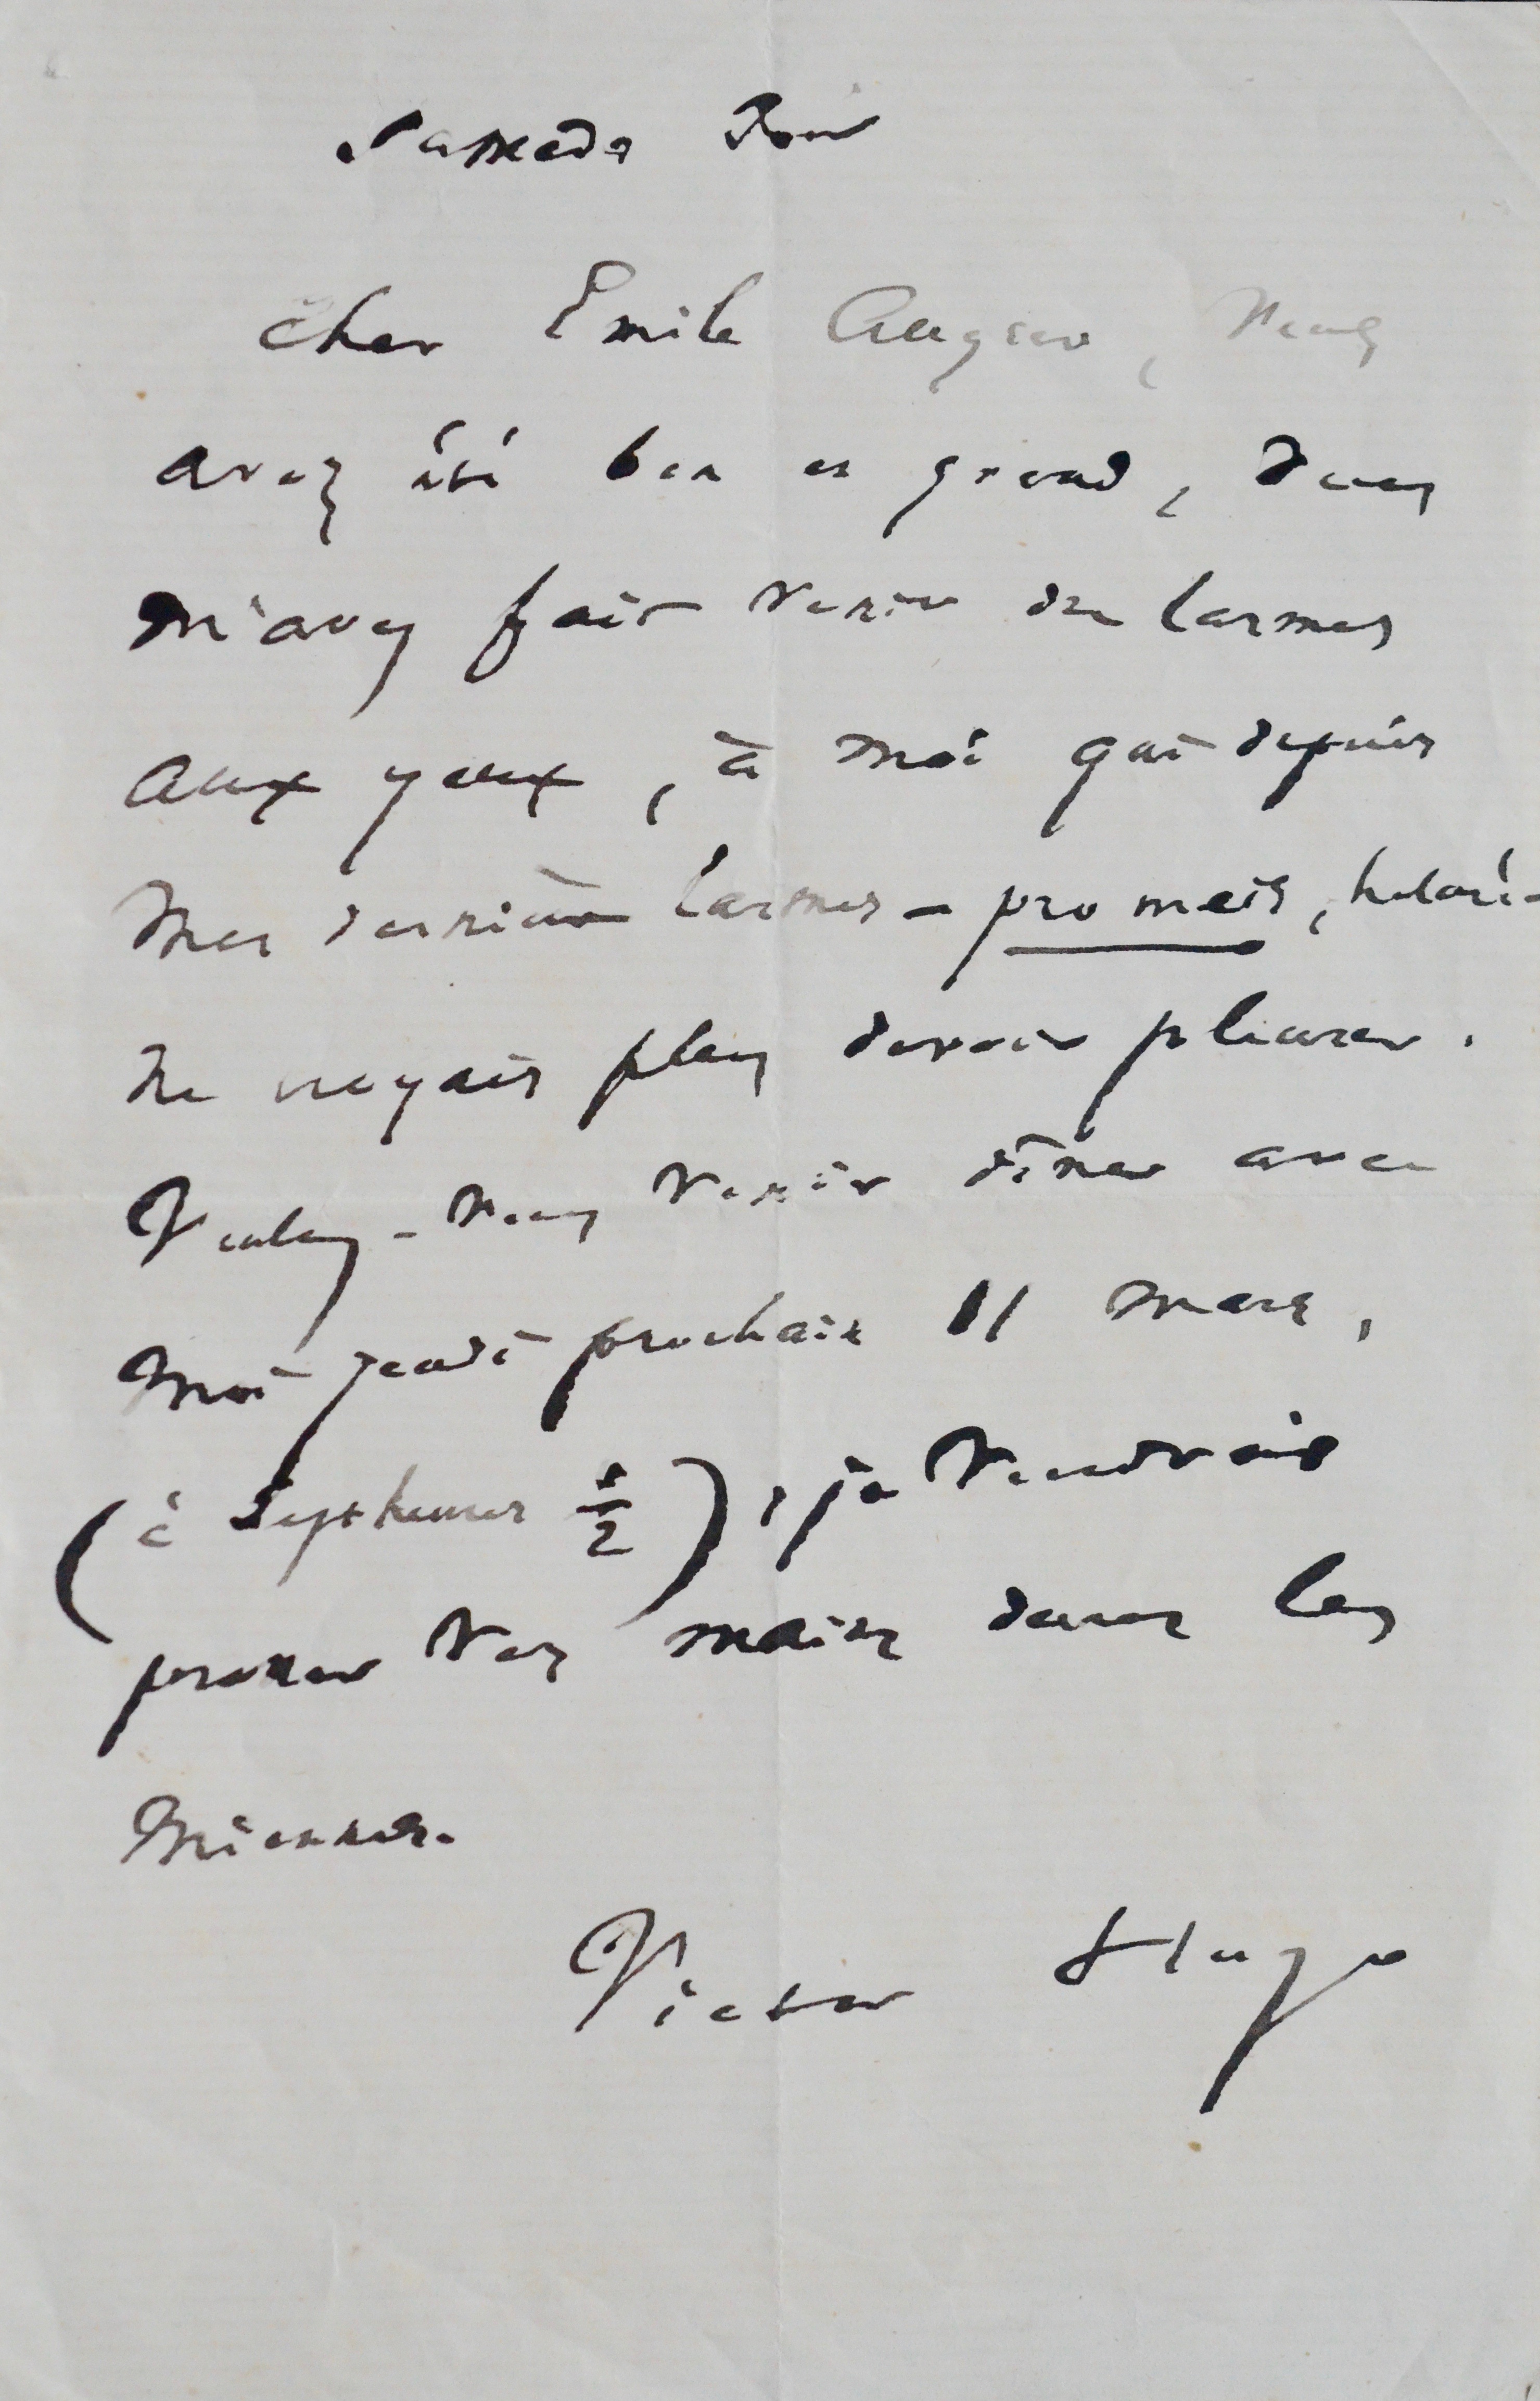 Samedi soir
Cher Émile Augier, vous
avez été bon et grand, vous
m'avez fait venir des larmes
aux yeux, à moi qui depuis
mes dernières larmes – pro meis, hélas! –
ne croyais plus devoir pleurer.
Voulez-vous venir dîner avec
moi jeudi prochain 11 mars,
(à sept heures ½), je voudrais
presser vos mains dans les
miennes.
Victor Hugo